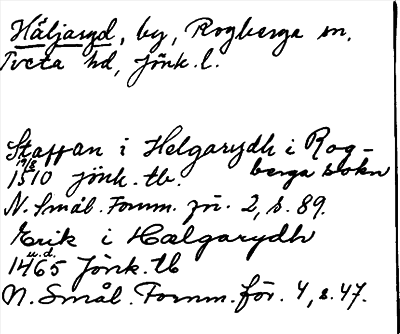 Häljaryd, by, Rogberga sn,
Tveta hd, Jönk. l.
Staffan i Helgarydh i Rog-
19/8 berga sokn
1510 Jönk. tb.
N. Smål. Fornm. för. 2, s. 89.
Erik i Hælgarydh
u.d.
1465 Jönk. tb
N. Smål. Fornm. för. 4, s. 47.